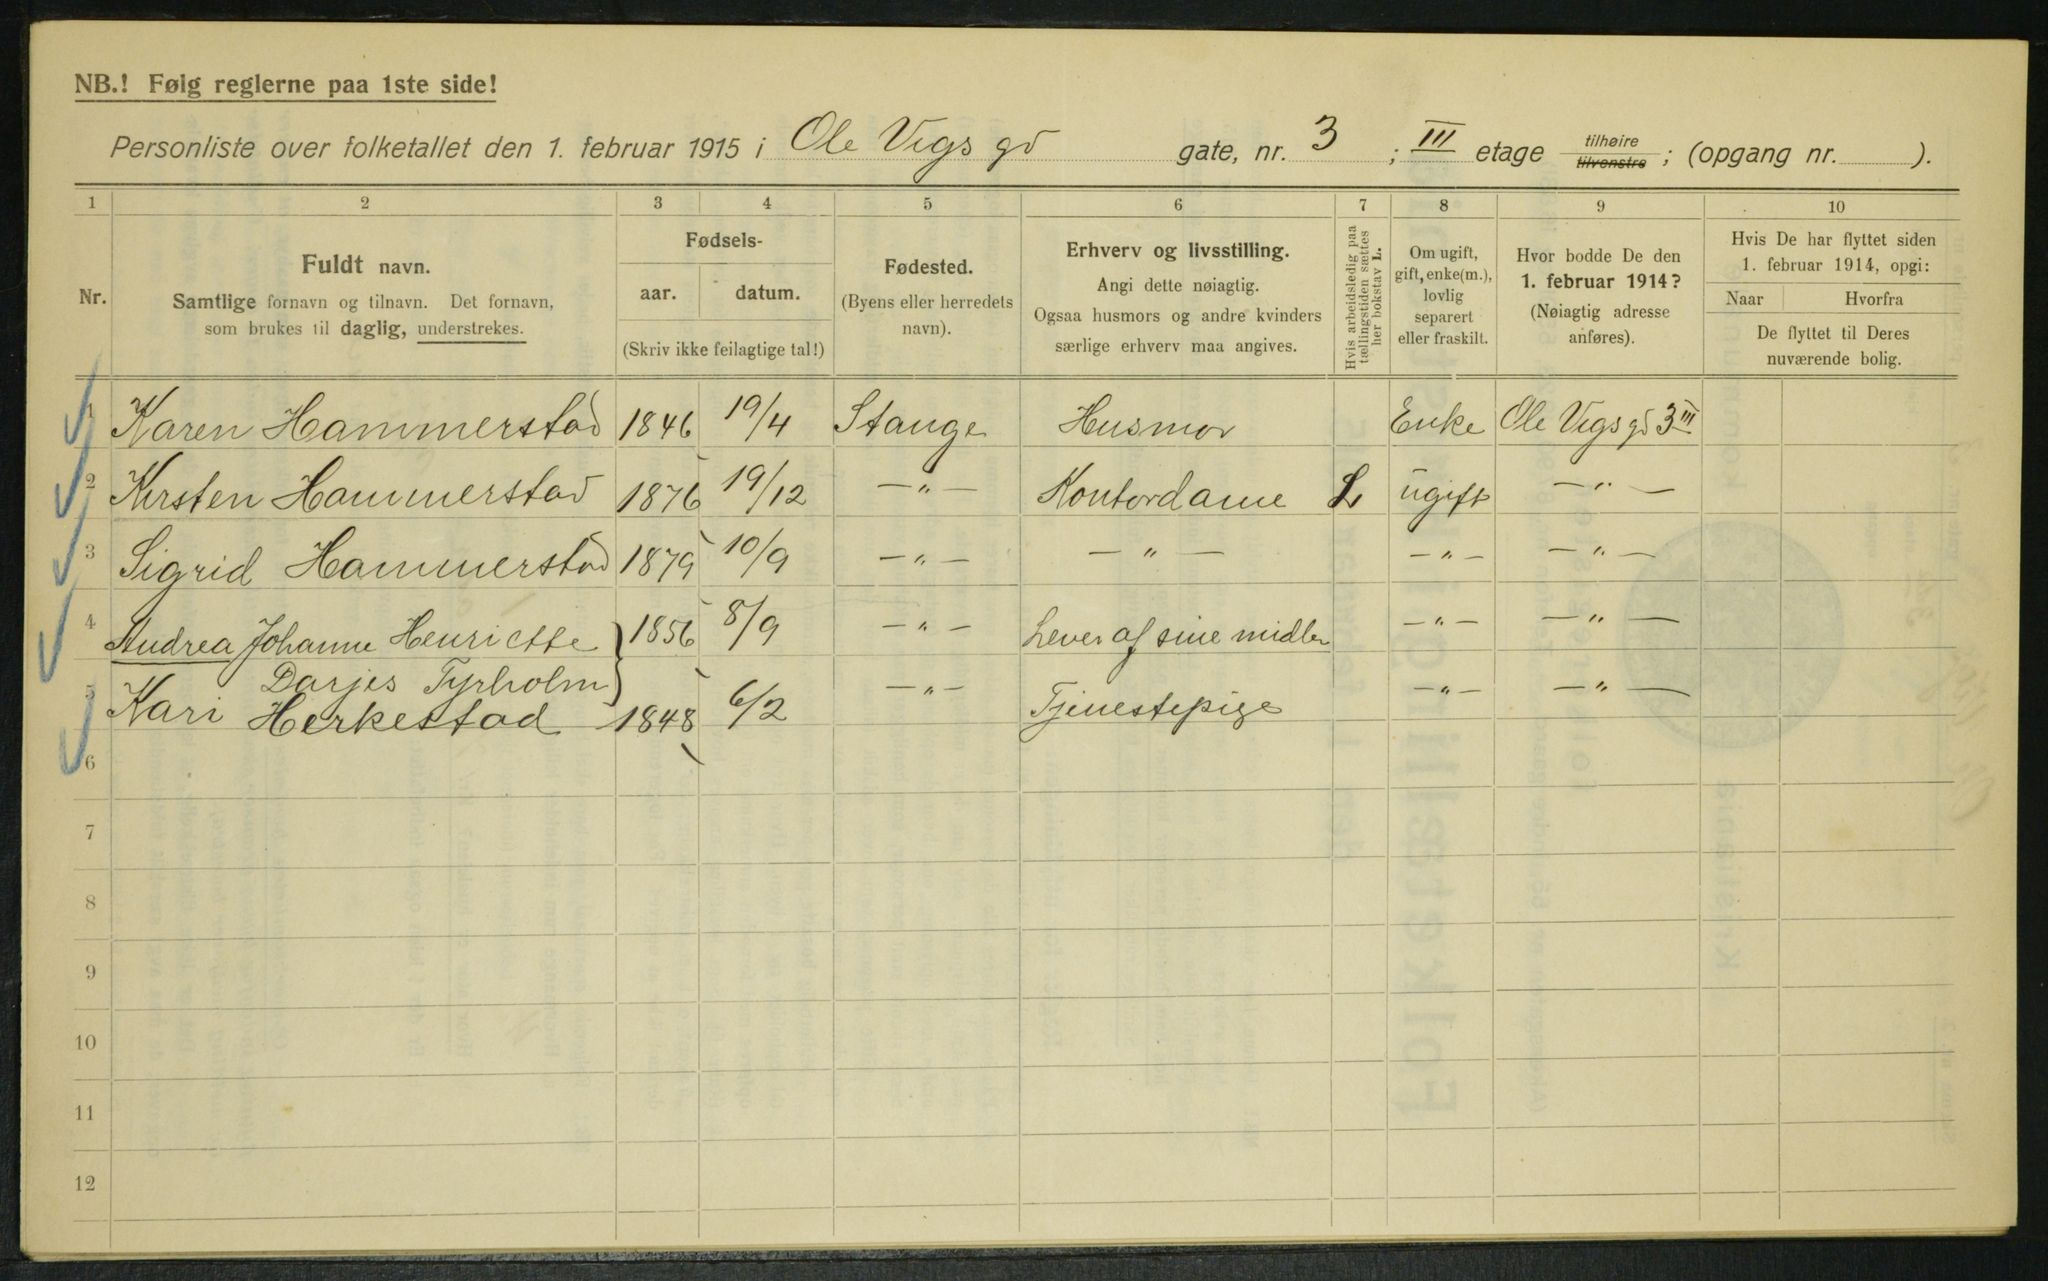 NB.! Følg reglerne paa 1ste side!
Personliste over folketallet den 1. februar 1915 i Ole Vigs gd gate, nr. 3 ; III etage tilhøire tilvenstre ; (opgang nr. ).
1 2 3 4 5 6 7 8 9 10
Nr.
Fuldt navn.
Samtlige fornavn og tilnavn. Det fornavn,
som brukes til daglig, understrekes.
Fødsels-
aar. datum.
(Skriv ikke feilagtige tal!)
Fødested.
(Byens eller herredets
navn).
Erhverv og livsstilling.
Angi dette nøiagtig.
Ogsaa husmors og andre kvinders
særlige erhverv maa angives.
Hvis arbeidsledig paa
tællingstiden sættes
her bokstav L.
Om ugift,
gift, enke(m.),
lovlig
separert
eller fraskilt.
Hvor bodde De den
1. februar 1914?
(Nøiagtig adresse
anføres).
Hvis De har flyttet siden
1. februar 1914, opgi:
Naar Hvorfra
De flyttet til Deres
nuværende bolig.
1 Karen Hammerstad 1846 19/4 Stange Husmor Enke Ole Vigs gd 3 III
2 Kirsten Hammerstad 1876 19/12 —"— Kontordame L ugift —"—
3 Sigrid Hammerstad 1879 10/9 —"— —"— —"— —"—
4 Andrea Johanne Henriette } 1856 8/9 —"— Lever af sine midler —"— —"—
Darjes Tyrholm
5 Kari Herkestad 1848 6/2 —"— Tjenestepige —"— —"—
6
7
8
9
10
11
12